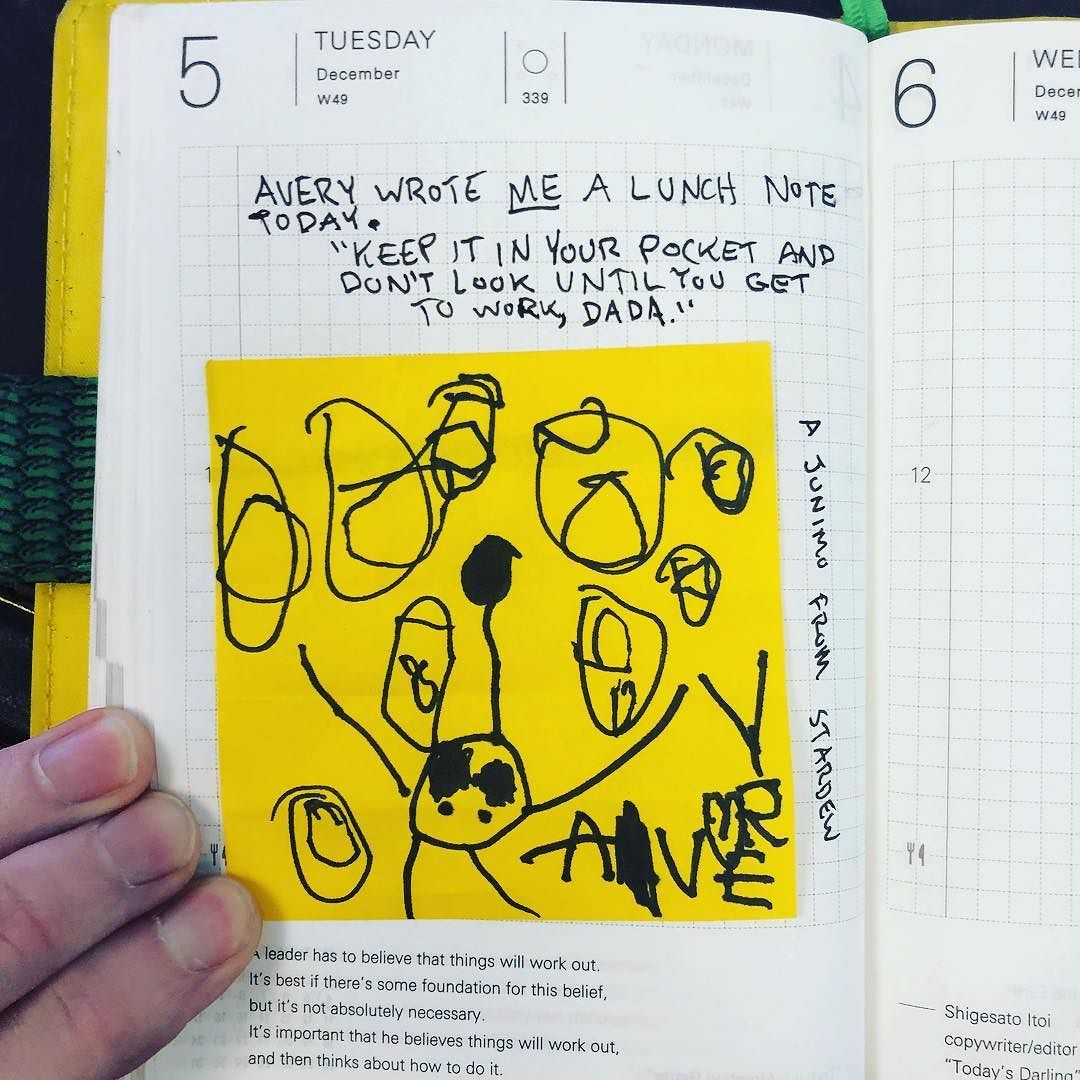 5
TUESDAY
December
W49
339
AVERY WROTE ME A LUNCH NOTE
TODAY.
"KEEP IT IN YOUR POCKET AND
DON'T LOOK UNTIL YOU GET
TO WORK, DADA."
A JUNIMO FROM STARDEW
A leader has to believe that things will work out.
It's best if there's some foundation for this belief,
but it's not absolutely necessary.
It's important that he believes things will work out,
and then thinks about how to do it.
6
Decem
W49
12
Shigesato Itoi
copywriter/editor
"Today's Darling"